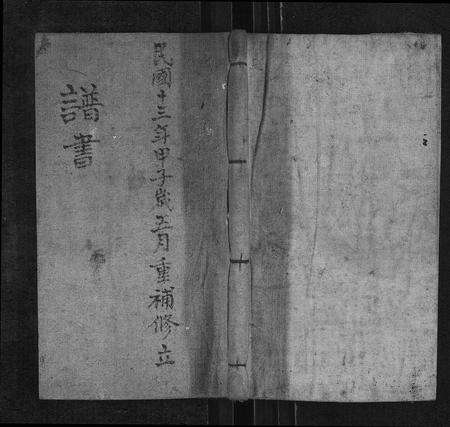 民國十三年甲子歲五月重補修立
譜書